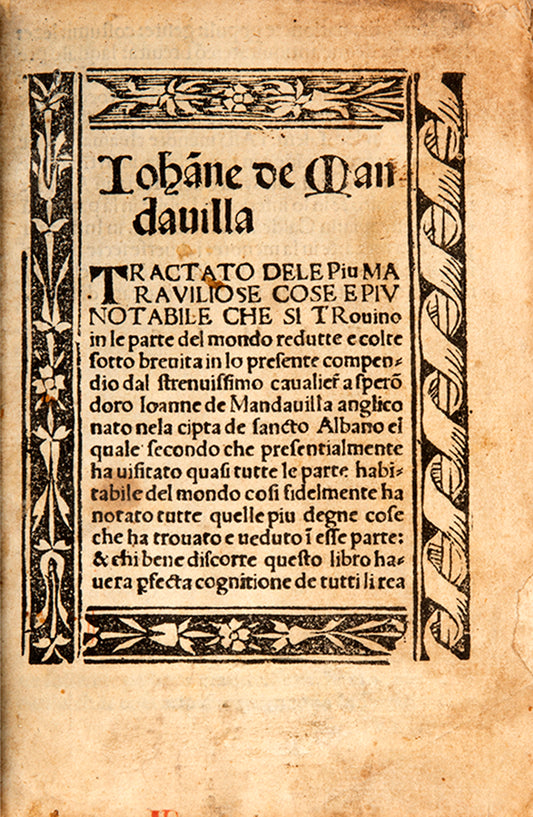 Iohāne de Man
dauilla
TRACTATO DELE Piu MA
RAVILIOSE COSE E PIV
NOTABILE CHE SI TRouino
in le parte del mondo redutte e colte
ſotto breuita in lo preſente compen-
dio dal ſtrenuiſſimo caualier̄ a ſperō
doro Ioanne de Mandauilla anglico
nato nela cipta de ſancto Albano el
quale ſecondo che preſentialmente
ha uiſitato quaſi tutte le parte habi-
tabile del mondo coſi fidelmente ha
notato tutte quelle piu degne coſe
che ha trouato e ueduto ī eſſe parte:
& chi bene diſcorre queſto libro ha-
uera ꝑfecta cognitione de tutti li rea